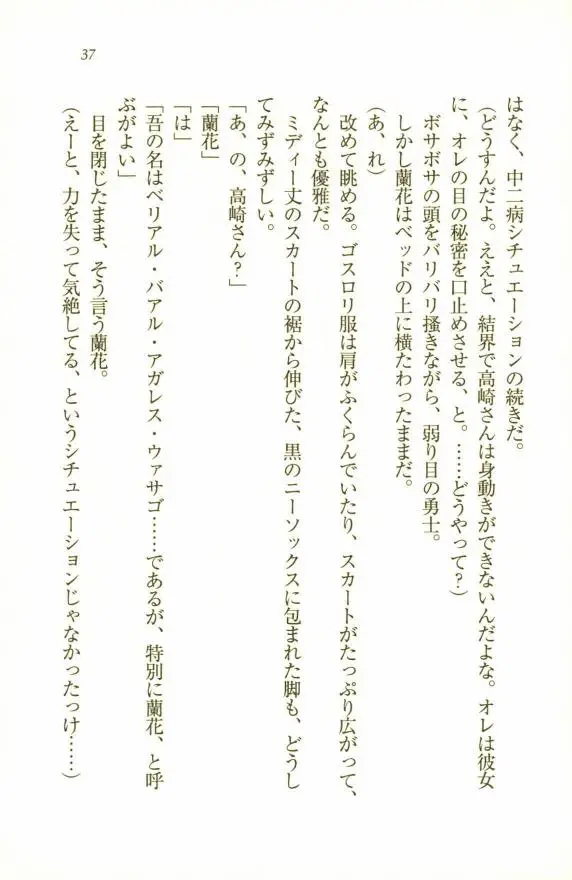 37
はなく、中二病シチュエーションの続きだ。
(どうすんだよ。ええと、結界で高崎さんは身動きができないんだよな。オレは彼女
に、オレの目の秘密を口止めさせる、と。……どうやって?)
ボサボサの頭をバリバリ掻きながら、弱り目の勇士。
しかし蘭花はベッドの上に横たわったままだ。
(あ、れ)
改めて眺める。ゴスロリ服は肩がふくらんでいたり、スカートがたっぷり広がって、
なんとも優雅だ。
ミディー丈のスカートの裾から伸びた、黒のニーソックスに包まれた脚も、どうし
てみずみずしい。
「あ、の、高崎さん?」
「蘭花」
「は」
「吾の名はベリアル・バアル・アガレス・ウァサゴ……であるが、特別に蘭花、と呼
ぶがよい」
目を閉じたまま、そう言う蘭花。
(えーと、力を失って気絶してる、というシチュエーションじゃなかったっけ……)